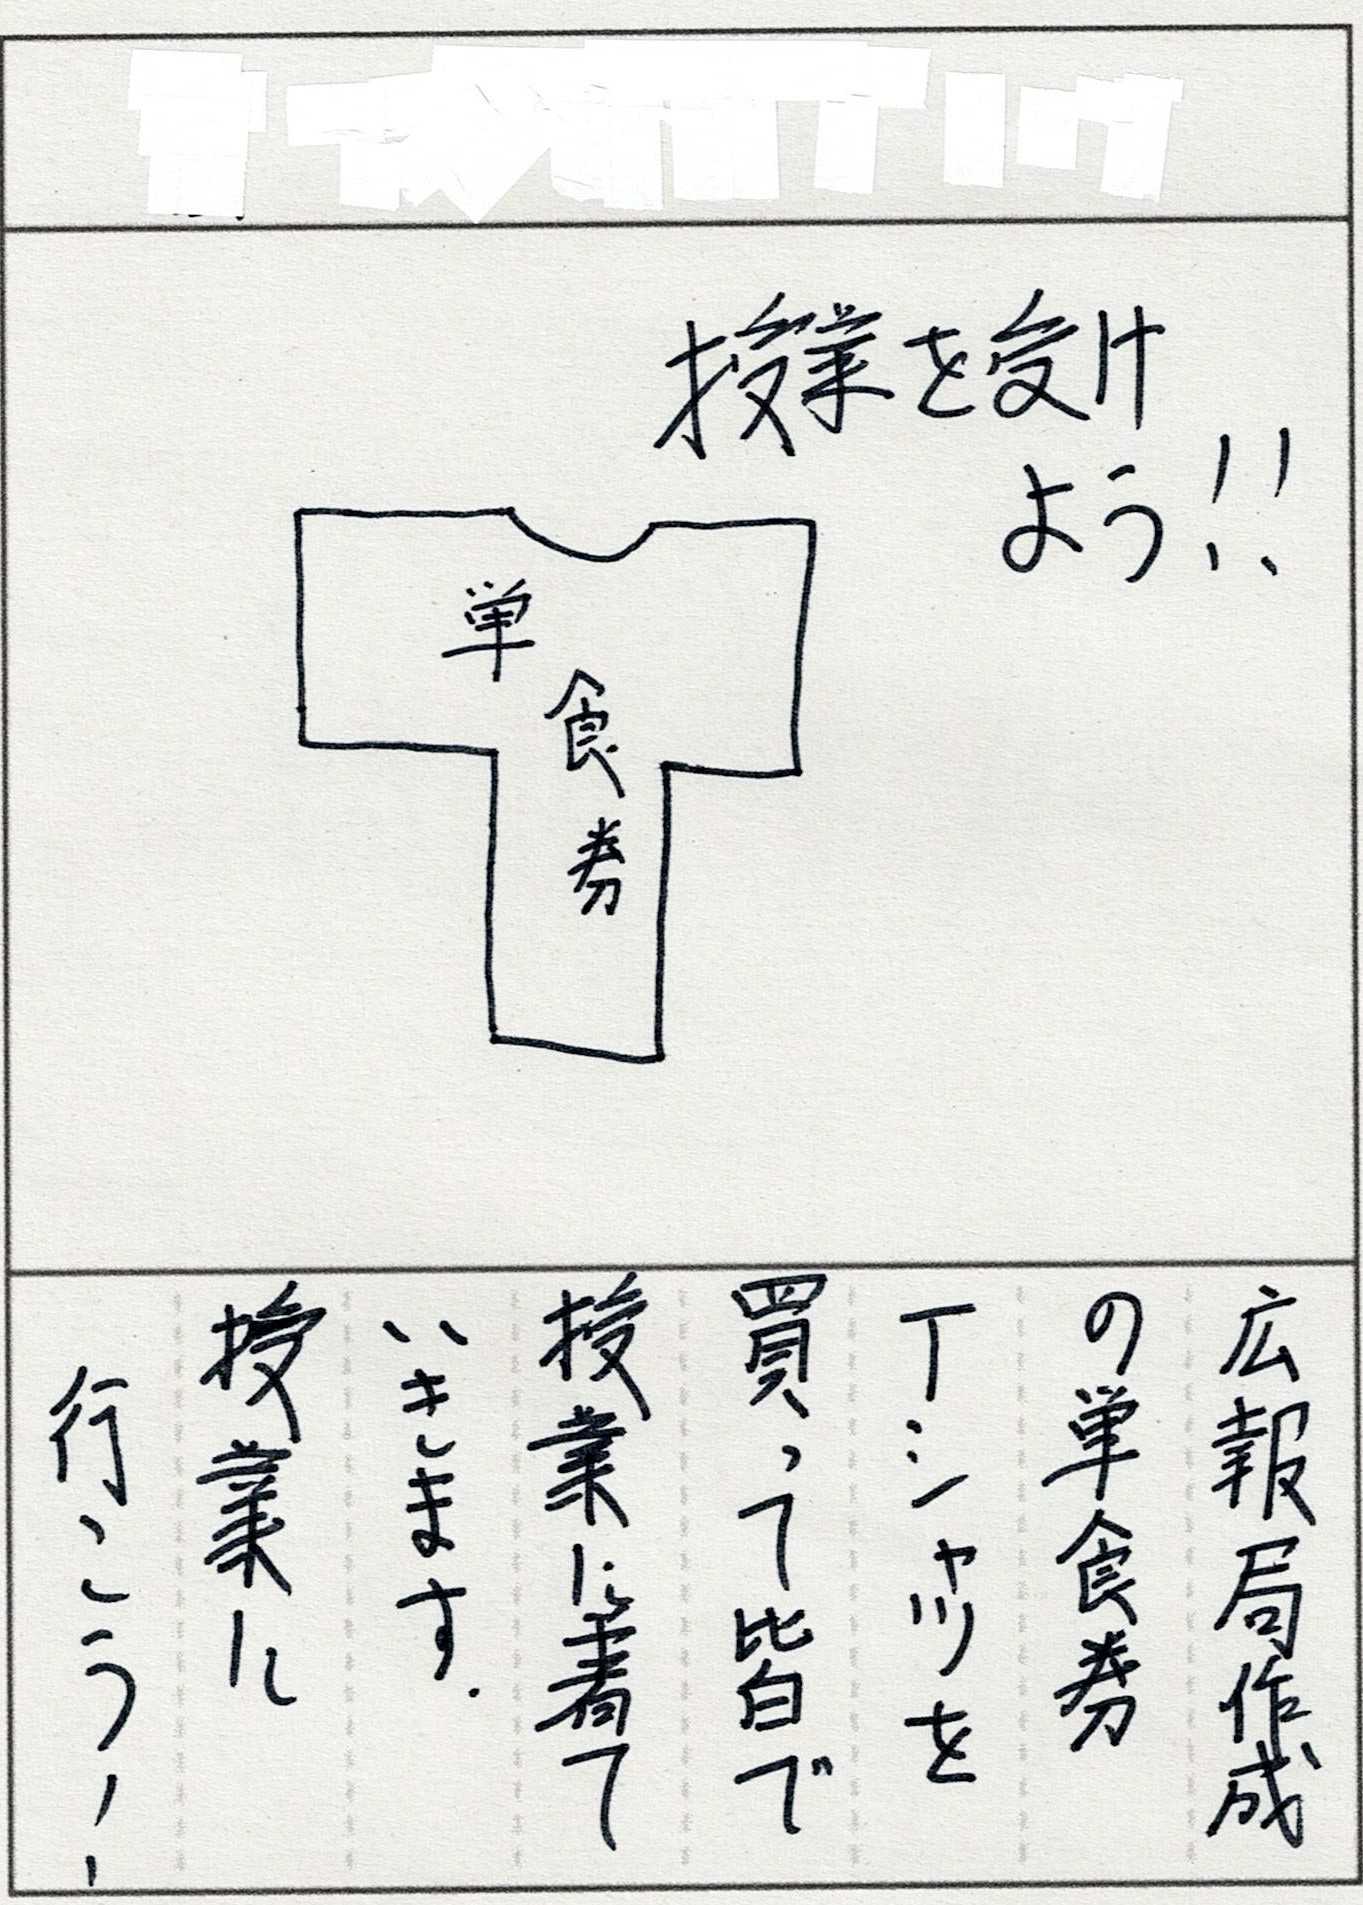 授業を受け
よう!!
単
食
券
広報局作成
の単食券
Tシャツを
買って皆で
授業に着て
いきます.
授業に
行こう!